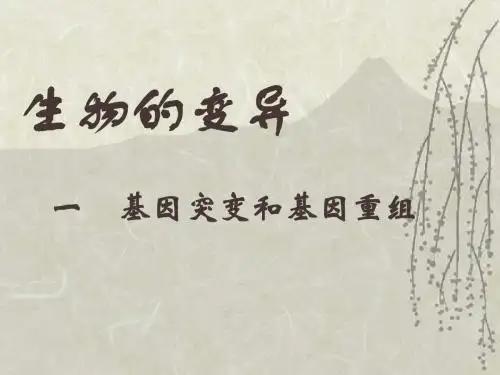 生物的变异
一 基因突变和基因重组